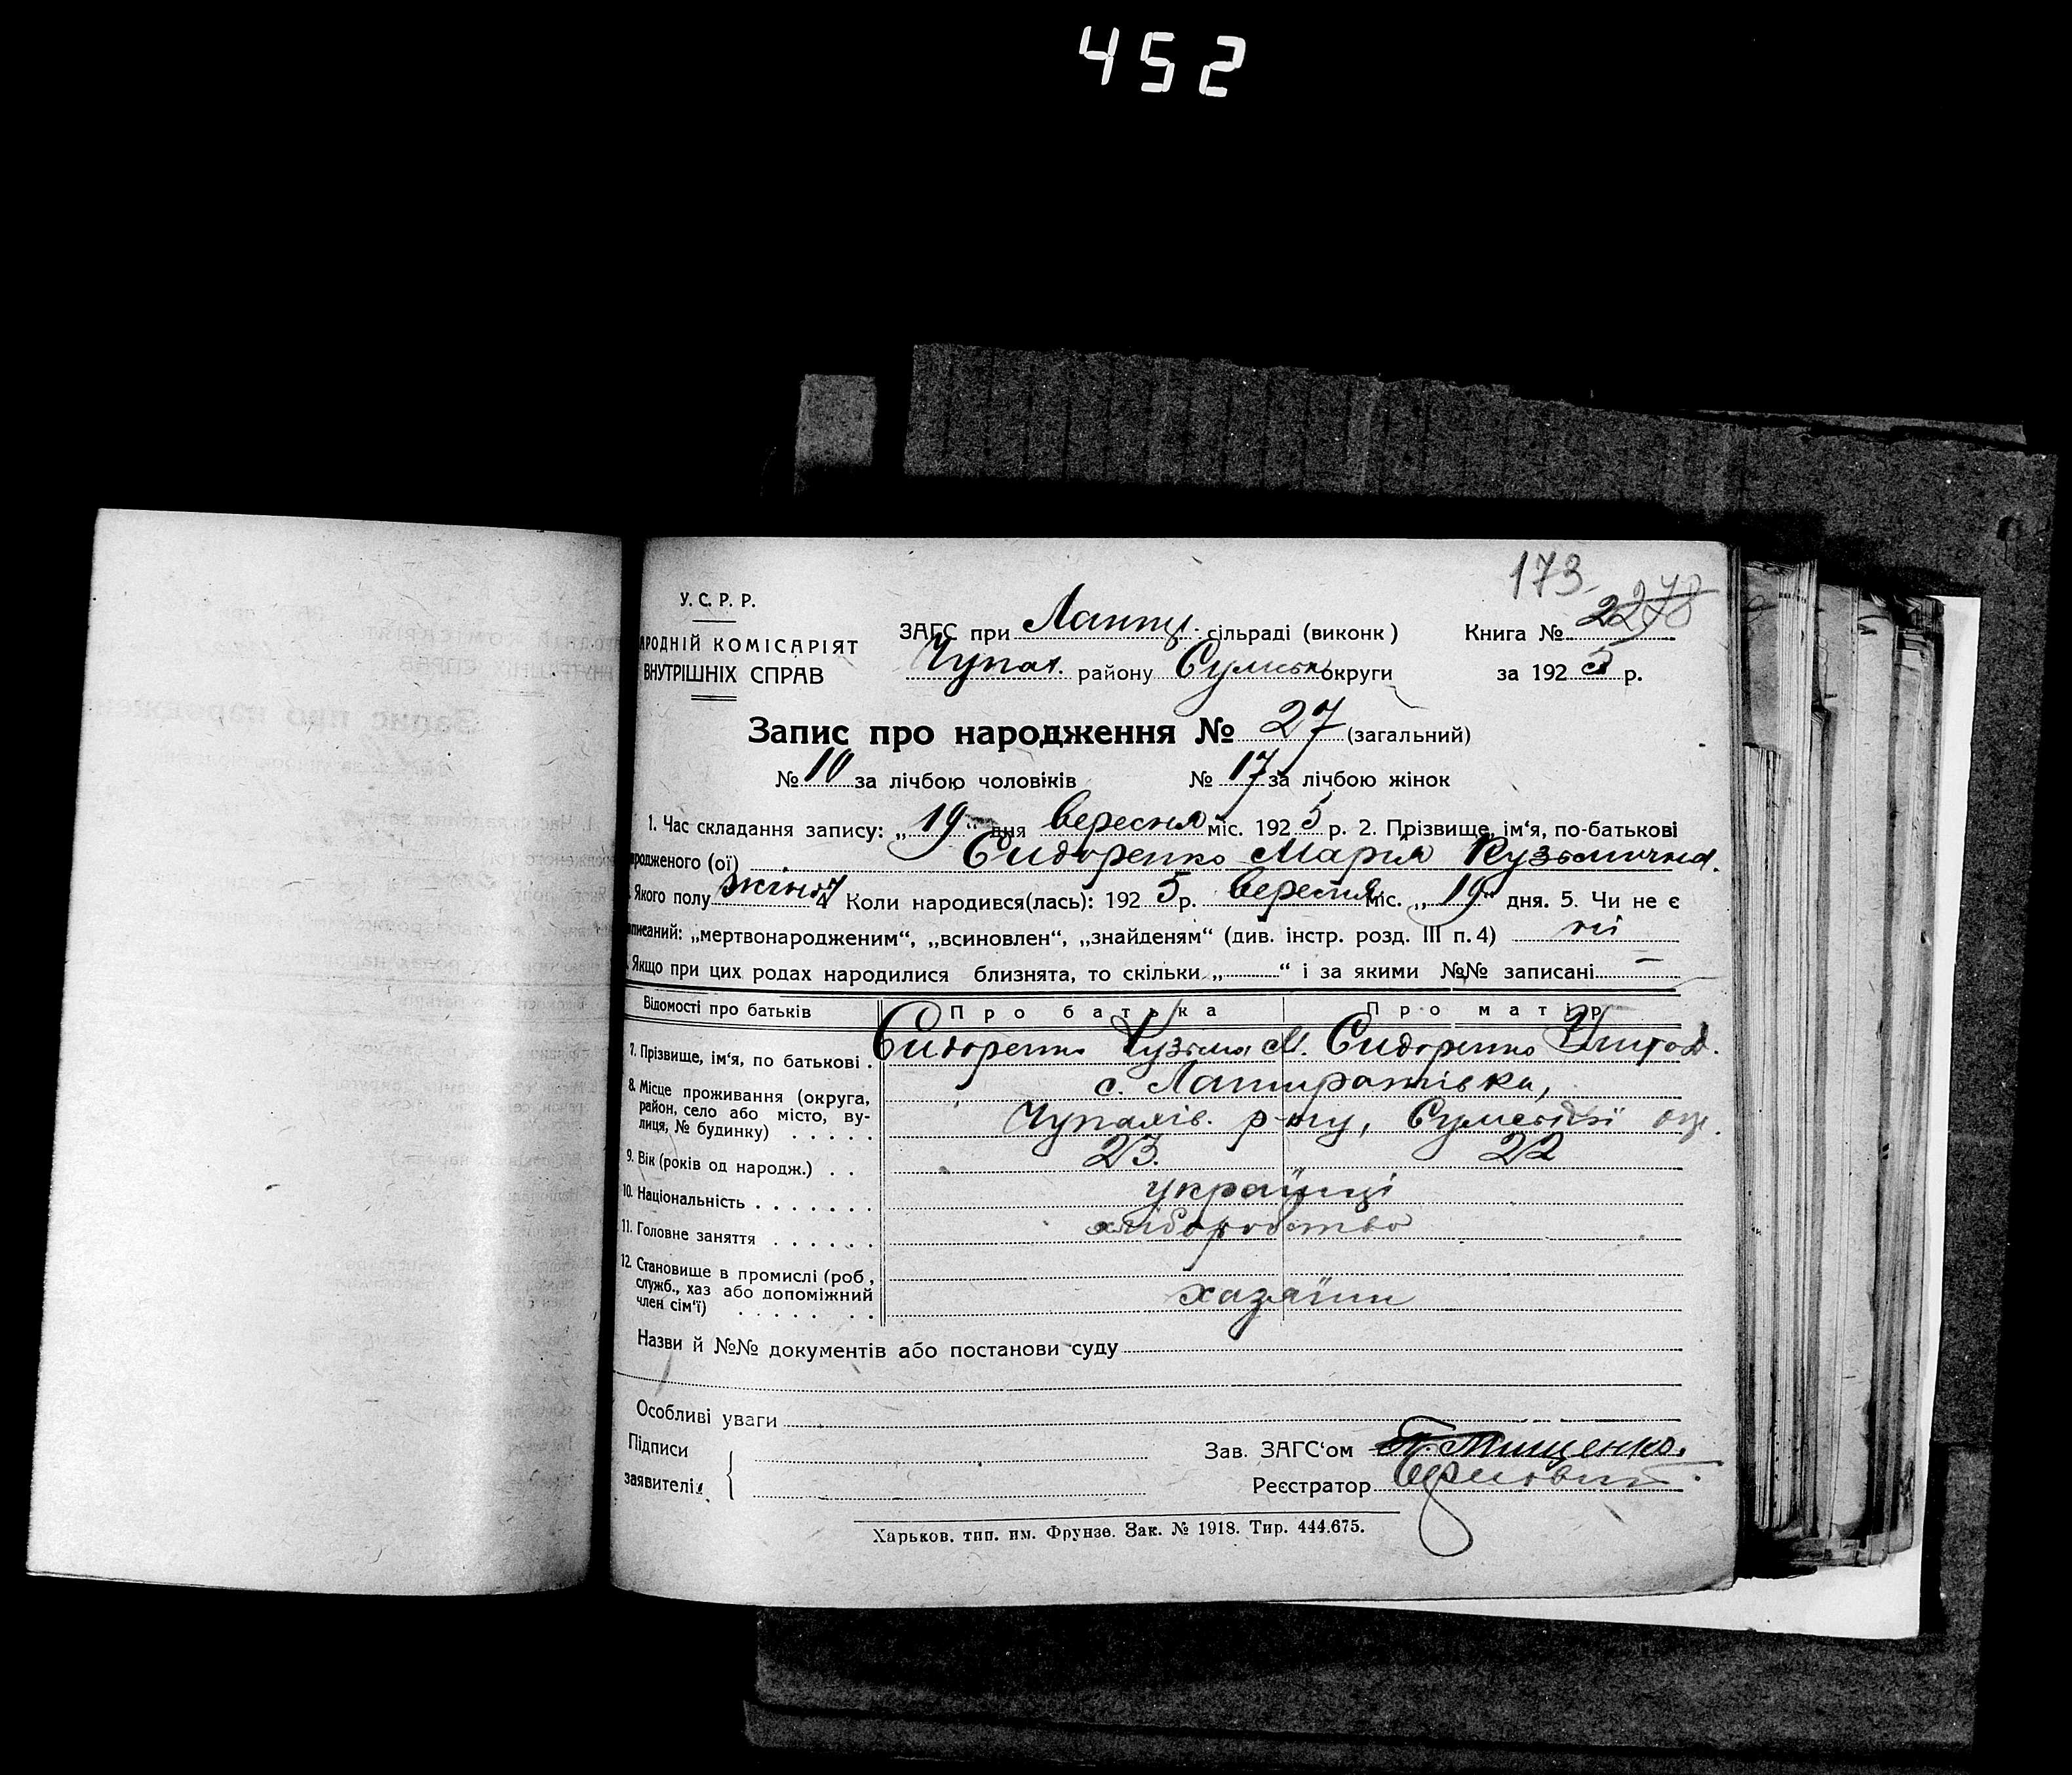 452
173
2278
У. С. Р. Р.
АРОДНІЙ КОМІСАРІЯТ
ВНУТРІШНІХ СПРАВ
ЗАГС при сільраді (виконк)
Чупах. району Сумськ округи
Книга №
за 1925 р.
Запис про народження № 27 (загальний)
№ 10 за лічбою чоловіків № 17 за лічбою жінок
1. Час складання запису: „ 19 “ дня вересня міс. 1925 р. 2. Прізвище, ім'я, по-батькові
родженого (ої) Сидоренко Марія Кузьмична.
Якого полу жіноч 4 Коли народився(лась): 1925 р. вересня міс. „ 19 “ дня. 5. Чи не є
писаний: „мертвонародженим“, „всиновлен“, „знайденям“ (див. інстр. розд. III п. 4) ні
Якщо при цих родах народилися близнята, то скільки „ “ і за якими №№ записані –
Відомості про батьків Про батька Про матір
7. Прізвище, ім'я, по батькові . Сидоренко Кузьма М. Сидоренко
8. Місце проживання (округа, район, село або місто, вулиця, № будинку) . . . . .
с.
Чупахів. р-ну, Сумської окр.
9. Вік (років од народж.) . . 23. 22
10. Національність . . . . . . . українці
11. Головне заняття . . . . . . хліборобство
12. Становище в промислі (роб., служб., хаз або допоміжний член сім'ї) . . . . . . . хазяїни
Назви й №№ документів або постанови суду
Особливі уваги
Підписи
заявителів
Зав. ЗАГС'ом Мищенко.
Реєстратор
Харьков. тип. им. Фрунзе. Зак. № 1918. Тир. 444.675.